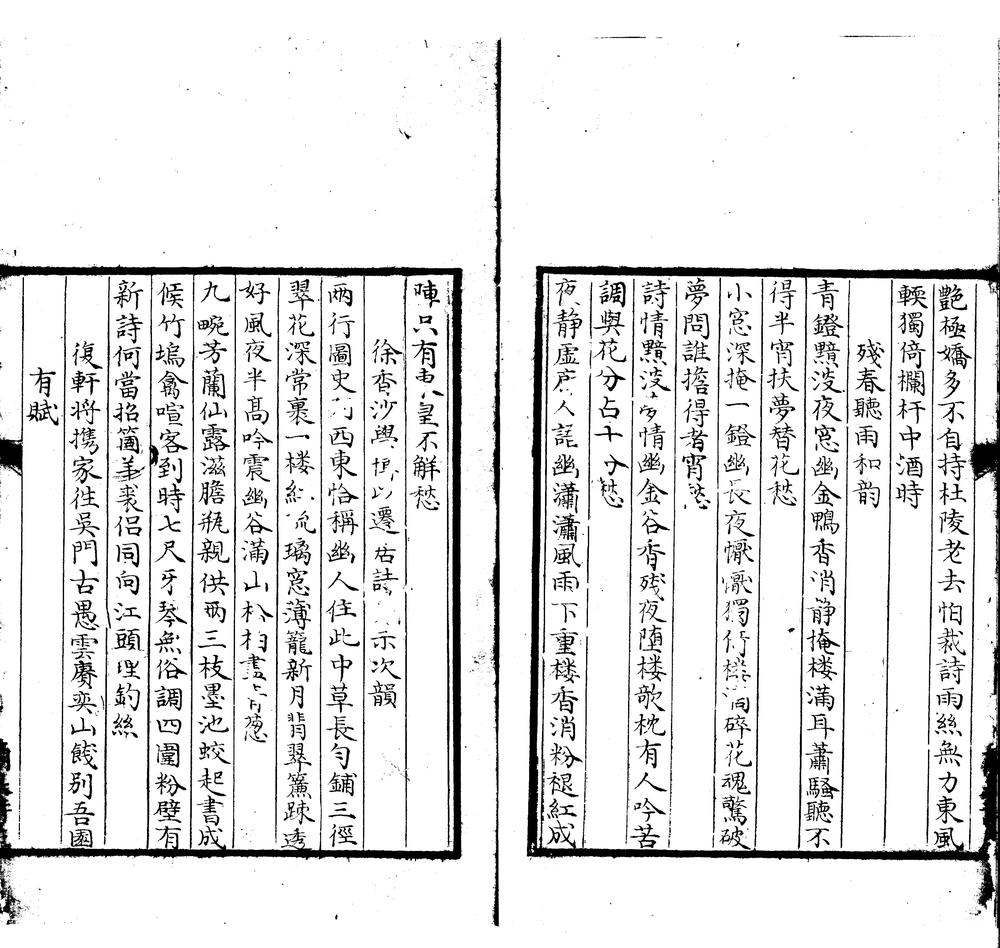 艷極嬌多不自持杜陵老去怕裁詩雨絲無力東風
輭獨倚欄杆中酒時
殘春聽雨和韵
青鐙黯淡夜窓幽金鴨香消靜掩楼滿耳蕭騷聽不
得半宵扶夢替花愁
小窓深掩一鐙幽長夜懨懨獨倚楼滴碎花魂驚破
夢問誰擔得者宵愁
詩情黯淡情幽金谷香殘夜堕楼欹枕有人吟苦
調與花分占十分愁
夜静虚人詫幽瀟瀟風雨下重楼香消粉褪紅成
陣只有東皇不解愁
徐香沙與遷居詩示次韻
兩行圖史西東恰稱幽人住此中草長勻鋪三徑
翠花深常裹一楼紅琉璃窓薄籠新月翡翠簾踈透
好風夜半髙吟震幽谷滿山松柏盡青葱
九畹芳蘭仙露滋膽瓶親供兩三枝墨池蛟起書成
候竹塢禽喧客到時七尺牙琴無俗調四圍粉壁有
新詩何當招箇羊裘侣同向江頭理釣絲
復軒将携家徃吳門古愚雲賡奕山餞别吾園
有賦